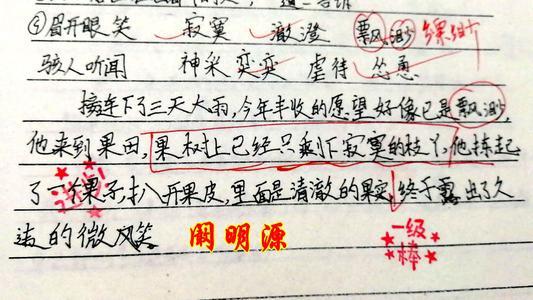 ④眉开眼笑 寂寞 澈澄 飘渺 缥缈
骇人听闻 神采奕奕 虐待 怂恿
接连下了三天大雨,今年丰收的愿望好像已是飘渺,
他来到果田,果树上已经只剩下寂寞的枝丫,他拣起
了一个果子,扒开果皮,里面是清澈的果实,终于露出了久
违的微笑 阚明源
一级
棒